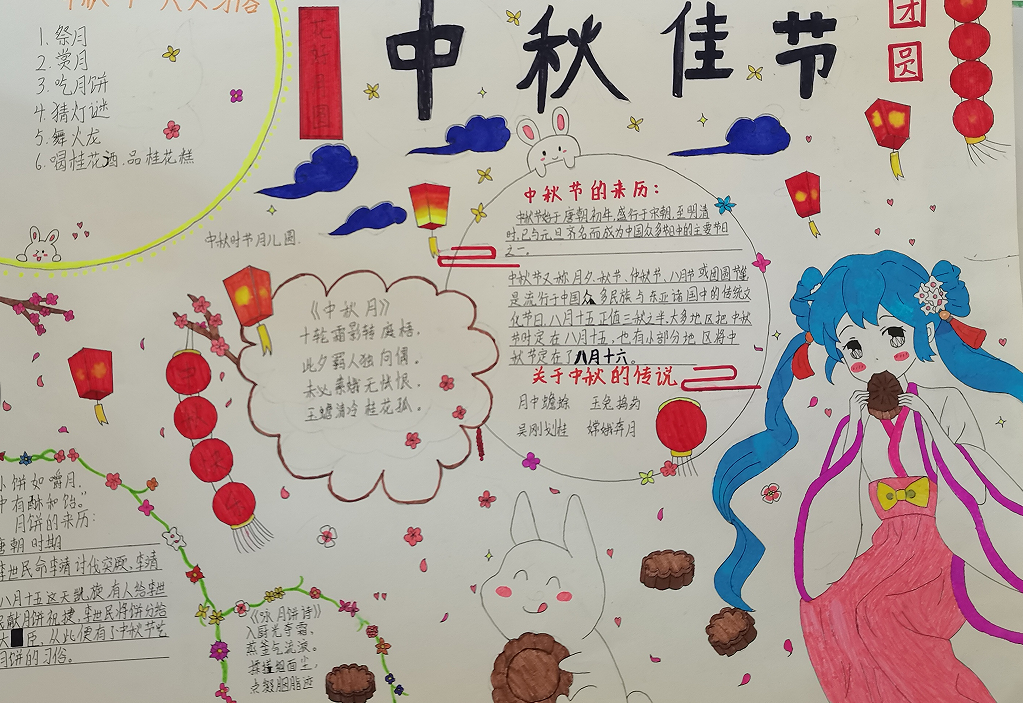 中秋佳节
团
圆
1.祭月
2.赏月
3.吃月饼
4.猜灯谜
5.舞火龙
6.喝桂花酒.品桂花糕
花好月圆
中秋时节月儿圆.
中秋节的来历:
中秋节始于唐朝初年,盛行于宋朝,至明清
时,已与元旦齐名而成为中国众多节日中的主要节日
之一。
中秋节又称月夕、秋节、仲秋节、八月节或团圆节等,
是流行于中国众多民族与东亚诸国中的传统文
化节日,八月十五正值三秋之半,大多地区把中秋
节时定在八月十五,也有小部分地区将中
秋节定在了八月十六。
关于中秋的传说
月中蟾蜍 玉兔捣药
吴刚伐桂 嫦娥奔月
《中秋月》
十轮霜影转庭梧,
此夕羁人独向隅。
未必素娥无怅恨,
玉蟾清冷桂花孤。
小饼如嚼月,
中有酥和饴。”
月饼的来历:
唐朝时期
李世民命李靖讨伐突厥,李靖
八月十五这天凯旋,有人给李世
民献月饼祝捷,李世民将饼分给
大臣,从此便有了中秋节吃
月饼的习俗。
《咏月饼诗》
入厨光夺霜,
蒸釜气流液。
揉搓细面尘,
点缀胭脂迹